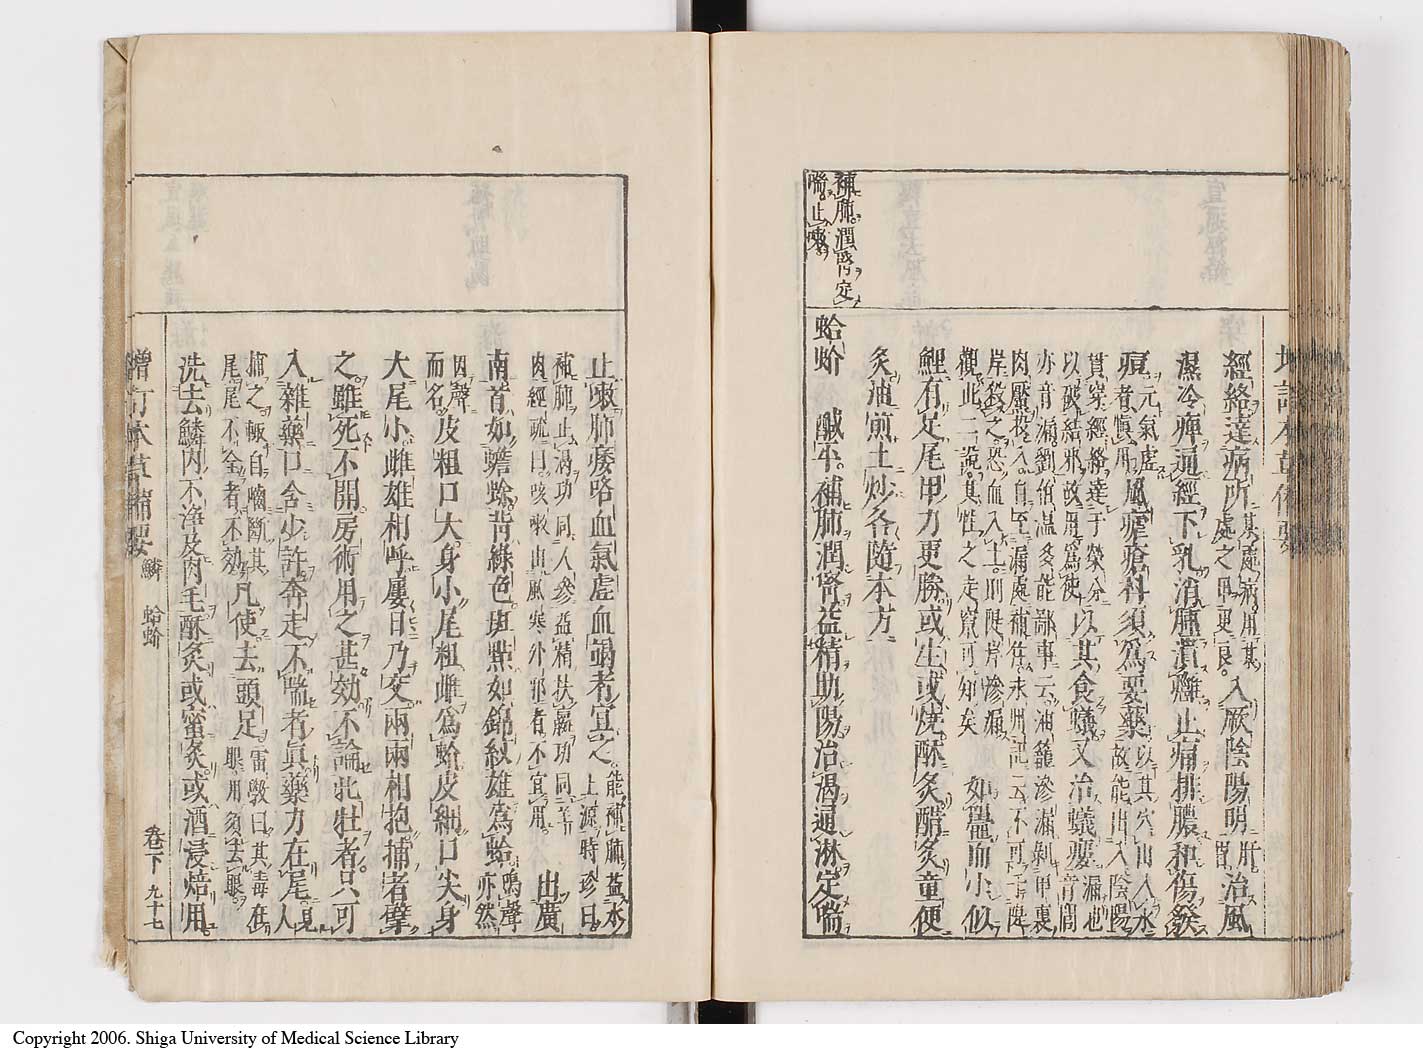 補肺。潤腎定
喘止嗽。
經絡達病所某處病用某處之甲更良。入厥陰陽明肝胃治風
濕冷痺通經下乳消腫潰癰止痛排膿和傷發
痘元氣虛者慎用風瘧瘡科須爲要藥以其穴山入水故能出入陰陽
貫穿經絡達于榮分以破結邪故用爲使以其食蟻又治蟻瘻音漏
亦音漏劉伯温多能鄙事云油籠滲漏剝甲裏
肉靨投入自至漏處補住永州記云不可于隄
岸殺之恐血入土則隄岸滲漏
觀此二說其性之走竄可知矣 如鼉而小似
鯉有足尾甲力更勝或生或燒酥炙醋炙童便
炙油煎土炒各隨本方
蛤蚧 鹹平。補肺潤腎益精助陽治渴通淋定喘
止嗽肺痿咯血氣虛血竭者宜之。能補肺益水上源時珍曰
補肺止渴功同人參益精扶羸功同羊
肉經疏曰咳嗽由風寒外邪者不宜用。 出廣
南首如蟾蜍背綠色斑點如錦紋雄爲蛤鳴聲亦然
因聲而名皮粗口大身小尾粗雌爲蚧皮細口尖身
大尾小雌雄相呼屢日乃交兩兩相抱捕者擘
之雖死不開房術用之甚効不論牝牡者。只可
入雜藥口含少許奔走不喘者眞藥力在尾人見
捕之輒自嚙斷其尾尾不全者不効凡使去頭足雷斅曰其毒在眼用須去眼。
洗去鱗内不淨及肉毛酥炙或蜜炙。或酒浸焙用。
增訂本草備要 鱗 蛤蚧 卷下 九十七